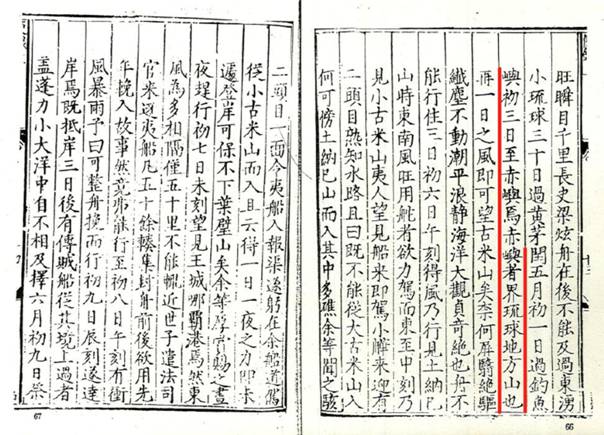 旺瞬目千里長史梁炫舟在後不能及過東湧
小琉球三十日過黃茅閏五月初一日過釣魚
嶼初三日至赤嶼焉赤嶼者界琉球地方山也
再一日之風即可望古米山矣奈何屏翳絕驅
纖塵不動潮平浪靜海洋大觀真奇絕也舟不
能行住三日初六日午刻得風乃行見土納巳
山時東南風旺用舵者欲力駕而東至申刻乃
見小古米山夷人望見船來即駕小艀來迎有
二頭目熟知水路且曰既不能從大古米山入
何可傍土納巳山而入其中多礁余等聞之駭
66
二頭目一面令夷船入報渠遂躬在余船道駕
從小古米山而入且云得一日一夜之力即未
遽登岸可保不下葉壁山矣余等厚賞賜之晝
夜趕行初七日未刻望見王城那霸港焉然東
風為多相隔僅五十里不能輙近世子遣法司
官來迎夷船凡五十餘輳集封舟前後欲用先
年挽入故事然竟弗能行至初八日午刻有衝
風暴雨予曰可整舟挽而行初九日辰刻遂達
岸焉既抵岸三日後有傳賊船從其境上過者
蓋蓬力小大洋中自不相及擇六月初九日祭
67